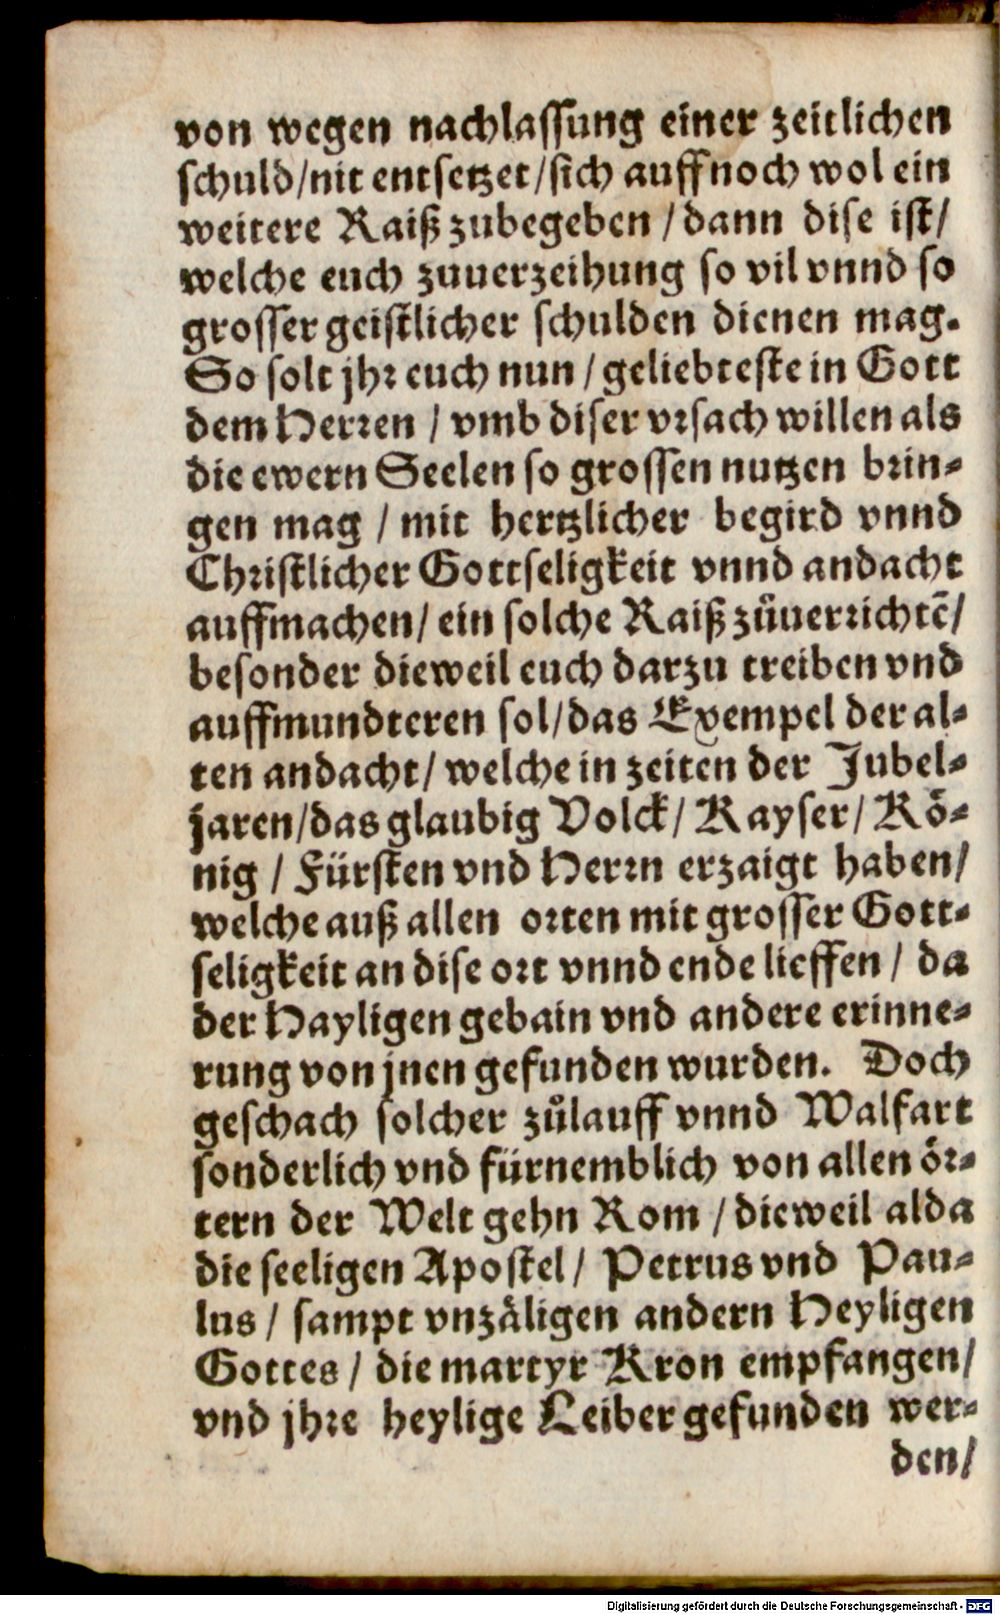 von wegen nachlassung einer zeitlichen
schuld/nit entsetzet/sich auff noch wol ein
weitere Raiß zubegeben / dann dise ist/
welche euch zuuerzeihung so vil vnnd so
grosser geistlicher schulden dienen mag.
So solt jhr euch nun / geliebteste in Gott
dem Herren / vmb diser vrsach willen als
die ewern Seelen so grossen nutzen brin-
gen mag / mit hertzlicher begird vnnd
Christlicher Gottseligkeit vnnd andacht
auffmachen/ ein solche Raiß zůuerrichtē/
besonder dieweil euch darzu treiben vnd
auffmundteren sol/das Exempel der al-
ten andacht/ welche in zeiten der Jubel-
jaren/das glaubig Volck/ Kayser/ Kö-
nig / Fürsten vnd Herrn erzaigt haben/
welche auß allen orten mit grosser Gott-
seligkeit an dise ort vnnd ende lieffen / da
der Hayligen gebain vnd andere erinne-
rung von jnen gefunden wurden. Doch
geschach solcher zůlauff vnnd Walfart
sonderlich vnd fürnemblich von allen ör-
tern der Welt gehn Rom / dieweil alda
die seeligen Apostel/ Petrus vnd Pau-
lus / sampt vnzäligen andern Heyligen
Gottes / die martyr Kron empfangen/
vnd jhre heylige Leiber gefunden wer-
den/
Digitalisierung gefördert durch die Deutsche Forschungsgemeinschaft - DFG